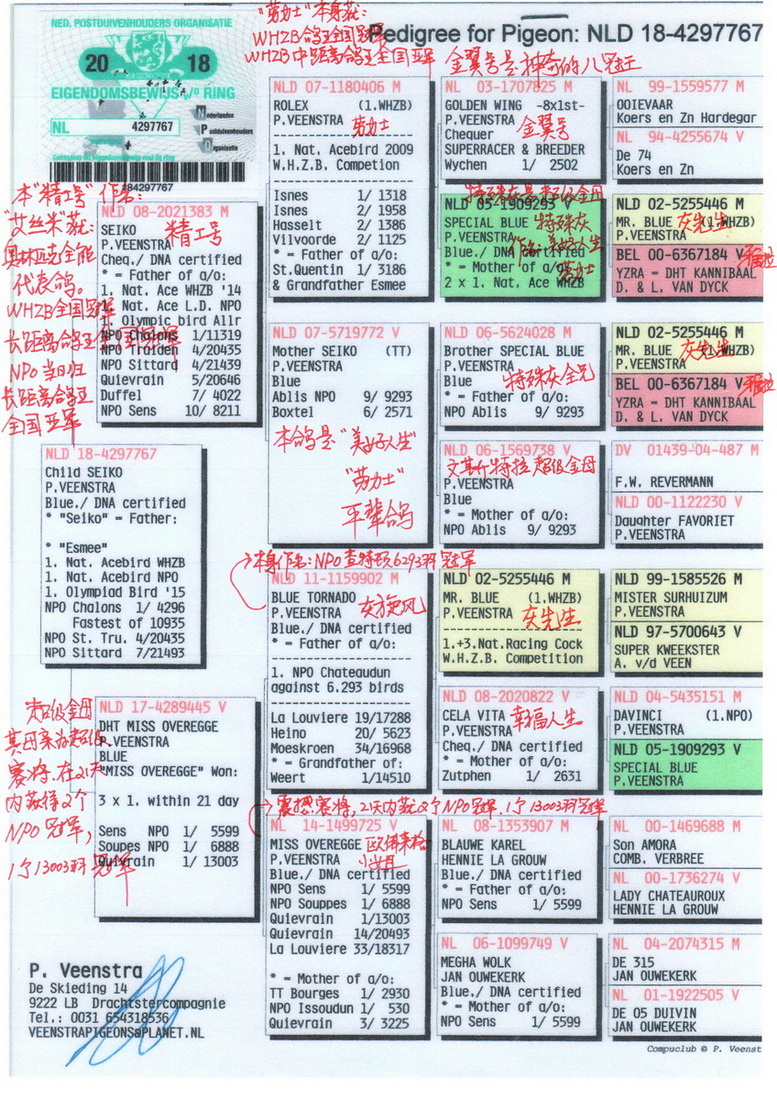 NED. POSTDUIVENHOUDERS ORGANISATIE
20 18
EIGENDOMSBEWIJS v/o RING
NL 4297767
Nederlandse
Postduivenhouders
184297767
"劳力士"本身获:
WHZB鸽王全国冠军
WHZB中距离鸽王全国亚军
Pedigree for Pigeon: NLD 18-4297767
金翼号是神奇的八冠王
本"精工号"作名:
"艾丝米"获:
奥林匹克全能
代表鸽。
WHZB全国冠军
长距离鸽王全国冠军
NPO当日归
长距离鸽王
全国亚军
NLD 08-2021383 M
SEIKO 精工号
P.VEENSTRA
Cheq./ DNA certified
* = Father of a/o:
1. Nat. Ace WHZB '14
1. Nat. Ace L.D. NPO
1. Olympic bird Allr
NPO Chalons 1/11319
NPO Traiden 4/20435
NPO Sittard 4/21439
Quievrain 5/20646
Duffel 7/ 4022
NPO Sens 10/ 8211
NLD 18-4297767
Child SEIKO
P.VEENSTRA
Blue./ DNA certified
* "Seiko" = Father:
* "Esmee"
1. Nat. Acebird WHZB
1. Nat. Acebird NPO
1. Olympiad Bird '15
NPO Chalons 1/ 4296
Fastest of 10935
NPO St. Tru. 4/20435
NPO Sittard 7/21493
超级金母
其母亲为超级
赛将.在21天
内获得2个
NPO冠军,
1个13003羽冠军
NLD 17-4289445 V
DHT MISS OVEREGGE
P.VEENSTRA
BLUE
"MISS OVEREGGE" Won:
3 x 1. within 21 day
Sens NPO 1/ 5599
Soupes NPO 1/ 6888
Quivrain 1/ 13003
NLD 07-1180406 M
ROLEX (1.WHZB)
P.VEENSTRA 劳力士
1. Nat. Acebird 2009
W.H.Z.B. Competion
Isnes 1/ 1318
Isnes 2/ 1958
Hasselt 2/ 1386
Vilvoorde 2/ 1125
* = Father of a/o:
St.Quentin 1/ 3186
& Grandfather Esmee
NLD 07-5719772 V
Mother SEIKO (TT)
P.VEENSTRA
Blue
Ablis NPO 9/ 9293
Boxtel 6/ 2571
本鸽是"美好人生"
"劳力士"
平辈鸽
本身作名:NPO查特顿6293羽冠军
NLD 11-1159902 M
BLUE TORNADO
P.VEENSTRA 灰旋风
Blue./ DNA certified
* = Father of a/o:
1. NPO Chateaudun
against 6.293 birds
La Louviere 19/17288
Heino 20/ 5623
Moeskroen 34/16968
* = Grandfather of:
Weert 1/14510
震撼赛将,21天内获2个NPO冠军.1个13003羽冠军
NL 14-1499725 V
MISS OVEREGGE
P.VEENSTRA 小姐
Blue./ DNA certified
NPO Sens 1/ 5599
NPO Souppes 1/ 6888
Quievrain 1/13003
Quievrain 14/20493
La Louviere 33/18317
* = Mother of a/o:
TT Bourges 1/ 2930
NPO Issoudun 1/ 530
Quievrain 3/ 3225
NL 03-1707825 M
GOLDEN WING -8x1st-
P.VEENSTRA 金翼号
Chequer
SUPERRACER & BREEDER
Wychen 1/ 2502
特殊灰是超级金母
NLD 05-1909293 V
SPECIAL BLUE 特殊灰
P.VEENSTRA
Blue./ DNA certified
* = Mother of a/o:
2 x 1. Nat. Ace WHZB
NLD 06-5624028 M
Brother SPECIAL BLUE
P.VEENSTRA
Blue 特殊灰全兄
* = Father of a/o:
NPO Ablis 9/ 9293
NLD 06-1569738 V
文斯特拉超级金母
P.VEENSTRA
Blue
* = Mother of a/o:
NPO Ablis 9/ 9293
NLD 02-5255446 M
MR. BLUE (1.WHZB)
P.VEENSTRA 灰先生
1.+3.Nat.Racing Cock
W.H.Z.B. Competition
NLD 08-2020822 V
CELA VITA 幸福人生
P.VEENSTRA
Cheq./ DNA certified
* = Mother of a/o:
Zutphen 1/ 2631
NL 08-1353907 M
BLAUWE KAREL
HENNIE LA GROUW
Blue./ DNA certified
* = Father of a/o:
NPO Sens 1/ 5599
NL 06-1099749 V
MEGHA WOLK
JAN OUWEKERK
Blue./ DNA certified
* = Mother of a/o:
NPO Sens 1/ 5599
NL 99-1559577 M
OOIEVAAR
Koers en Zn Hardegar
NL 94-4255674 V
De 74
Koers en Zn
NLD 02-5255446 M
MR. BLUE 灰先生 (1.WHZB)
P.VEENSTRA
BEL 00-6367184 V
YZRA = DHT KANNIBAAL
D. & L. VAN DYCK
NLD 02-5255446 M
MR. BLUE 灰先生 (1.WHZB)
P.VEENSTRA
BEL 00-6367184 V
YZRA = DHT KANNIBAAL
D. & L. VAN DYCK
DV 01439-04-487 M
F.W. REVERMANN
NLD 00-1122230 V
Daughter FAVORIET
P.VEENSTRA
NLD 99-1585526 M
MISTER SURHUIZUM
P.VEENSTRA
NLD 97-5700643 V
SUPER KWEEKSTER
A. v/d VEEN
NLD 04-5435151 M
DAVINCI (1.NPO)
P.VEENSTRA
NLD 05-1909293 V
SPECIAL BLUE
P.VEENSTRA
NL 00-1469688 M
Son AMORA
COMB. VERBREE
NL 00-1736274 V
LADY CHATEAUROUX
HENNIE LA GROUW
NL 04-2074315 M
DE 315
JAN OUWEKERK
NL 01-1922505 V
DE 05 DUIVIN
JAN OUWEKERK
P. Veenstra
De Skieding 14
9222 LB Drachtstercompagnie
Tel.: 0031 654318536
VEENSTRAPIGEONS@PLANET.NL
Compuclub © P. Veenst